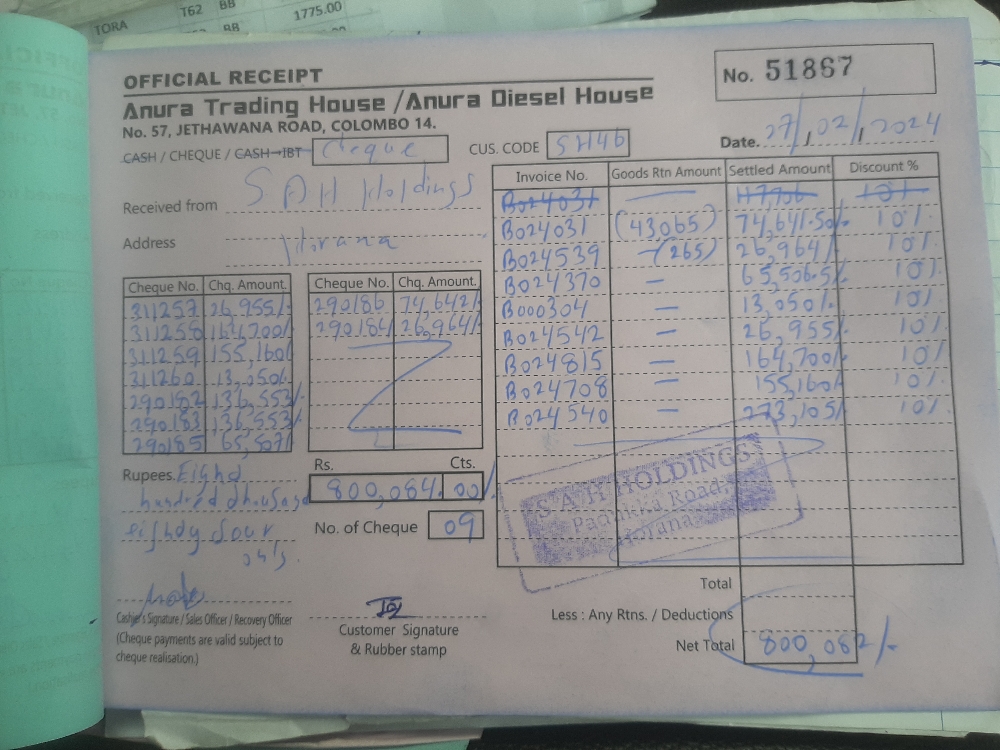 TORA T62 BB 1775.00
BB
OFFICIAL RECEIPT
No. 51867
Anura Trading House /Anura Diesel House
No. 57, JETHAWANA ROAD, COLOMBO 14.
Date. 27/02/2024
CASH / CHEQUE / CASH-IBT Cheque CUS. CODE SH46
Received from S A H Holdings
Address Horana
Invoice No. Goods Rtn Amount Settled Amount Discount %
B024031 117,706 10%
B024031 (43065) 74,641.50/- 10%
B024539 -(265) 26,964/- 10%
B024370 — 65,506.5/- 10%
B000304 — 13,050/- 10%
B024542 — 26,955/- 10%
B024815 — 164,700/- 10%
B024708 — 155,160/- 10%
B024540 — 273,105/- 10%
Cheque No. Chq. Amount. Cheque No. Chq. Amount.
311257 26,955/- 290186 74,642/-
311258 164,700/- 290184 26,964/-
311259 155,160/-
311260 13,050/-
290182 136,553/-
290183 136,553/-
290185 65,507/-
Rupees. Eighd
hundred dhousand
eighdy dour
only.
Rs. Cts.
800,084. 00/-
No. of Cheque 09
S A H HOLDINGS
Padukka Road,
Horana
Cashier's Signature / Sales Officer / Recovery Officer
(Cheque payments are valid subject to
cheque realisation.)
Customer Signature
& Rubber stamp
Total
Less : Any Rtns. / Deductions
Net Total 800,082/-